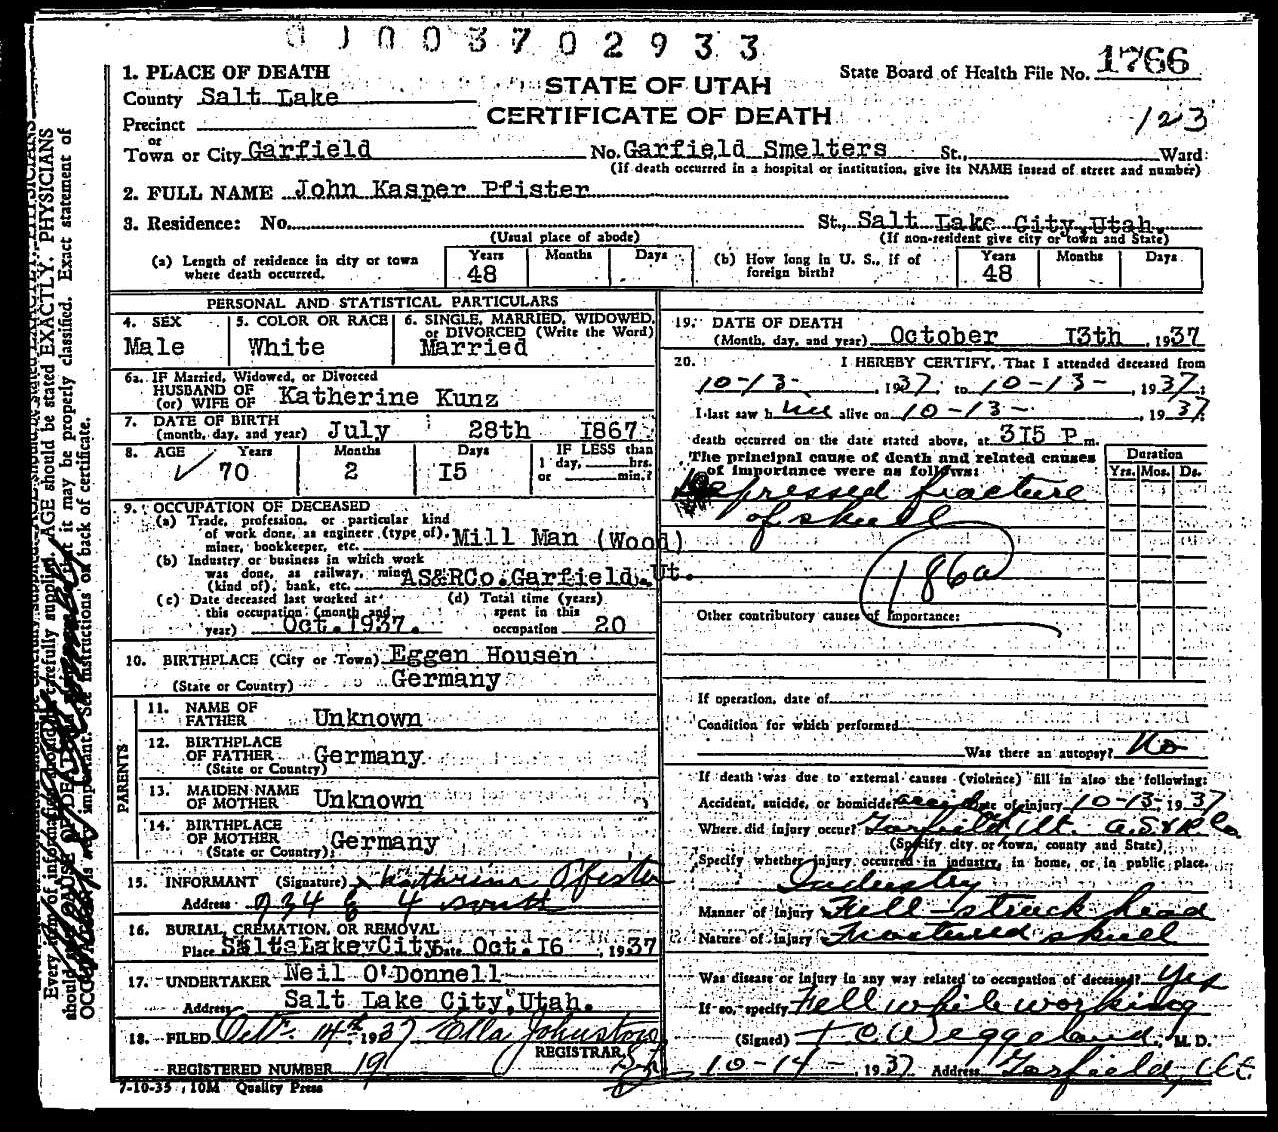 0100370 2933
1. PLACE OF DEATH
County Salt Lake
STATE OF UTAH
State Board of Health File No. 1766
Precinct
CERTIFICATE OF DEATH
123
or
Town or City Garfield No. Garfield Smelters St., Ward
(If death occurred in a hospital or institution, give its NAME instead of street and number)
2. FULL NAME John Kasper Pfister
3. Residence: No. St., Salt Lake City, Utah.
(Usual place of abode) (If non-resident give city or town and State)
(a) Length of residence in city or town where death occurred. Years 48 Months Days
(b) How long in U. S., if of foreign birth? Years 48 Months Days
PERSONAL AND STATISTICAL PARTICULARS
4. SEX Male
5. COLOR OR RACE White
6. SINGLE, MARRIED, WIDOWED, or DIVORCED (Write the Word) Married
6a. IF Married, Widowed, or Divorced
HUSBAND OF
(or) WIFE OF Katherine Kunz
7. DATE OF BIRTH
(month, day, and year) July 28th I867
8. AGE Years 70 Months 2 Days I5 IF LESS than 1 day, hrs. or min.?
9. OCCUPATION OF DECEASED
(a) Trade, profession, or particular kind
of work done, as engineer (type of),
miner, bookkeeper, etc. Mill Man (Wood)
(b) Industry or business in which work
was done, as railway, mine
(kind of), bank, etc. AS&RCo. Garfield. Ut.
(c) Date deceased last worked at
this occupation (month and
year) Oct. I937.
(d) Total time (years)
spent in this
occupation 20
10. BIRTHPLACE (City or Town) Eggen Housen
(State or Country) Germany
PARENTS
11. NAME OF FATHER Unknown
12. BIRTHPLACE OF FATHER (State or Country) Germany
13. MAIDEN NAME OF MOTHER Unknown
14. BIRTHPLACE OF MOTHER (State or Country) Germany
15. INFORMANT (Signature) Kathrina Pfister
Address 934 E 4 South
16. BURIAL, CREMATION, OR REMOVAL
Place Salt Lake City Date Oct. I6, 1937
17. UNDERTAKER Neil O'Donnell
Address Salt Lake City, Utah.
18. FILED Oct. 14th 1937 Ella Johnston
REGISTRAR.
REGISTERED NUMBER 191
7-10-35 10M Quality Press
19. DATE OF DEATH
(Month, day, and year) October I3th, 1937
20. I HEREBY CERTIFY, That I attended deceased from
10-13-, 1937, to 10-13-, 1937;
I last saw him alive on 10-13-, 1937.
death occurred on the date stated above, at 3I5 P m.
The principal cause of death and related causes
of importance were as follows:
Duration
Yrs. Mos. Ds.
Depressed fracture
of skull
186a
Other contributory causes of importance:
If operation, date of
Condition for which performed
Was there an autopsy? No
If death was due to external causes (violence) fill in also the following:
Accident, suicide, or homicide? accid Date of injury 10-13-1937
Where did injury occur? Garfield Ut. A.S&R Co.
(Specify city or town, county and State)
Specify whether injury occurred in industry, in home, or in public place.
Industry
Manner of injury Fell - struck head
Nature of injury Fractured skull
Was disease or injury in any way related to occupation of deceased? Yes
If so, specify Fell while working
(Signed) T C Weggeland, M. D.
10-14-, 1937. Address Garfield, Ut.